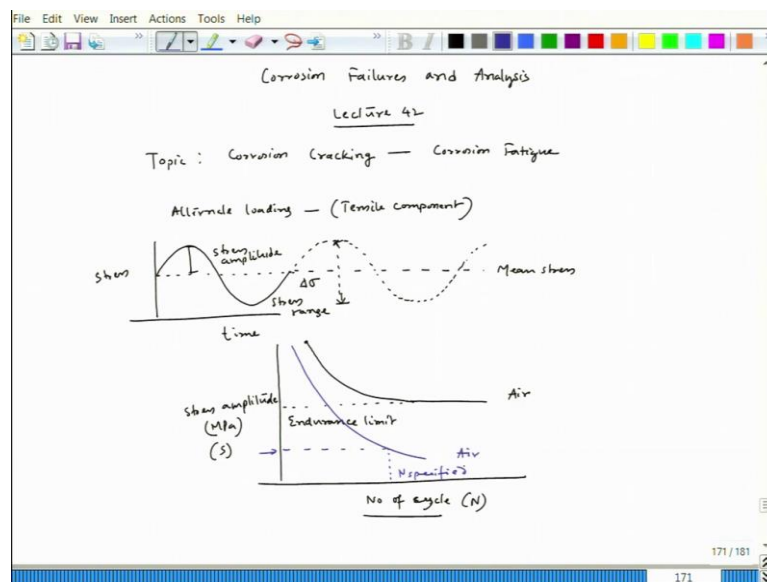 File Edit View Insert Actions Tools Help
B I
Corrosion Failures and Analysis
Lecture 42
Topic : Corrosion Cracking — Corrosion Fatigue
Alternate loading — (Tensile component)
Stress
stress amplitude
Δσ
stress range
Mean stress
time
Stress amplitude
(MPa)
(S)
Endurance limit
Air
Air
N specified
No of cycle (N)
171 / 181
171